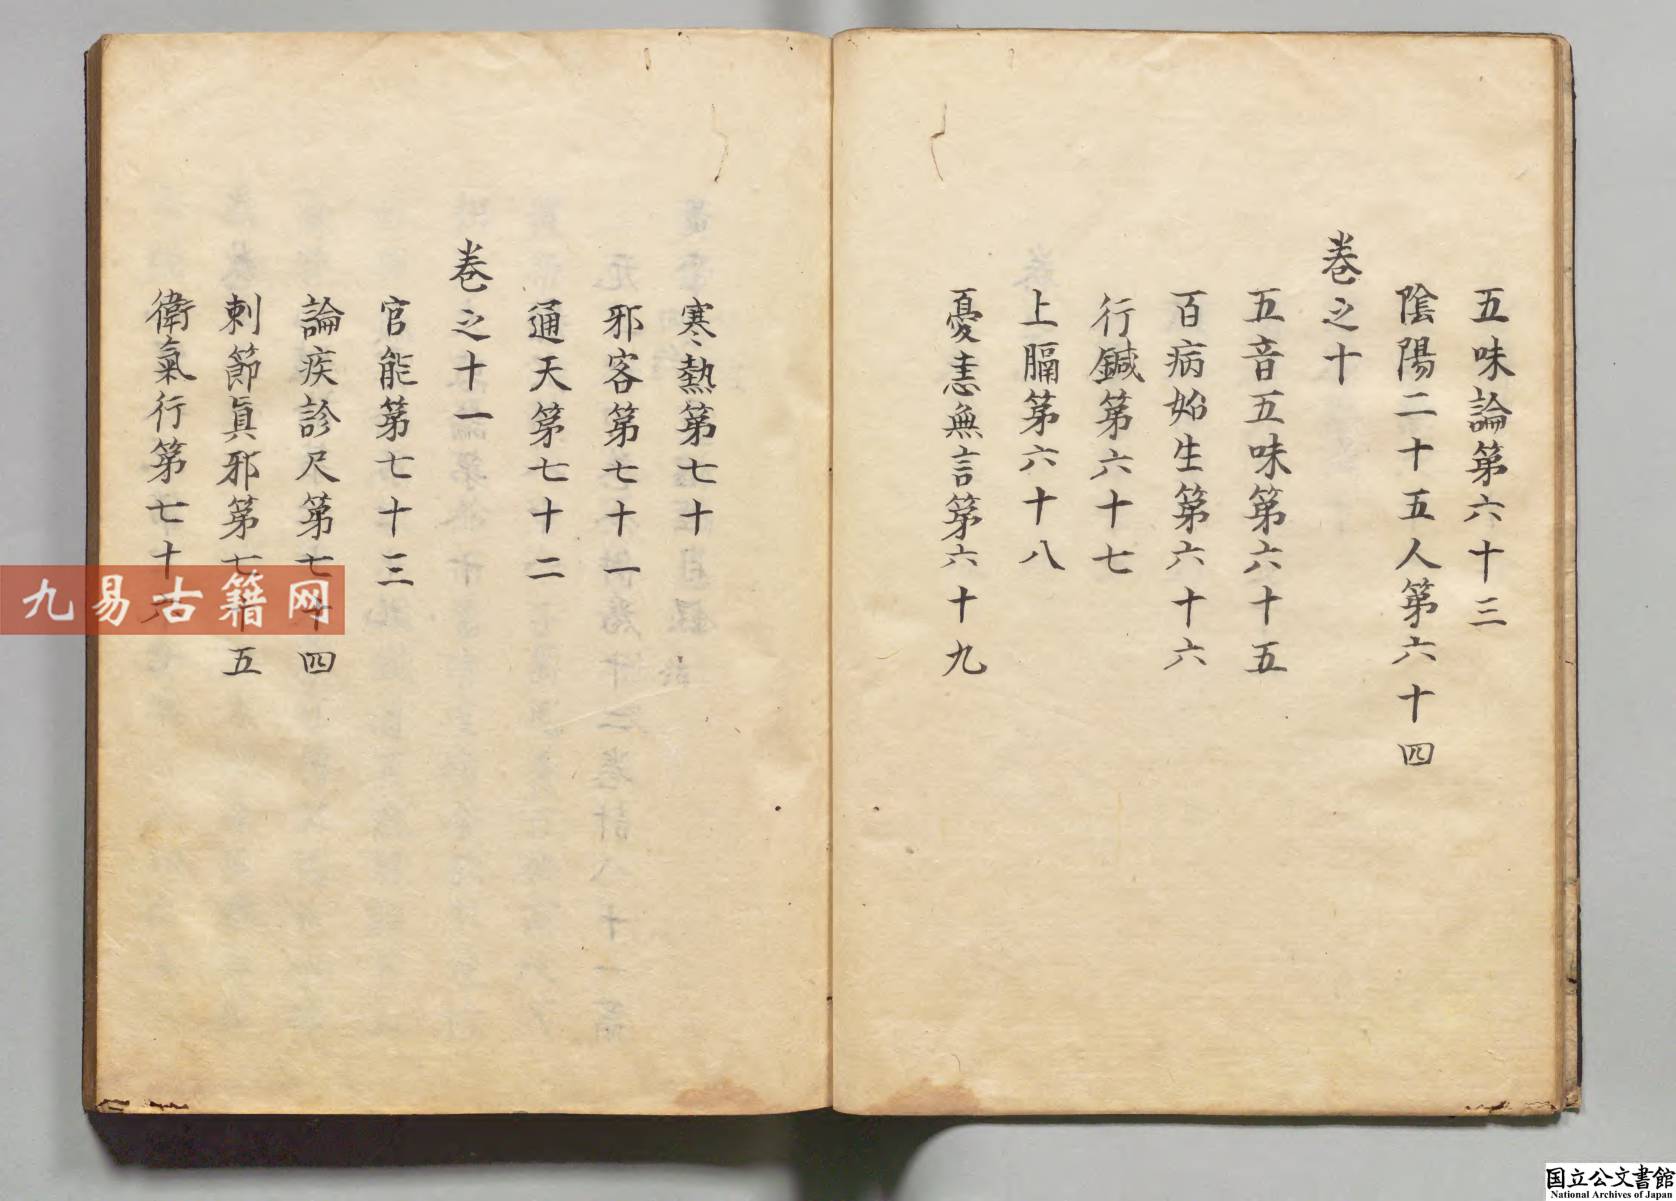 五味論第六十三
陰陽二十五人第六十四
卷之十
五音五味第六十五
百病始生第六十六
行鍼第六十七
上膈第六十八
憂恚無言第六十九
寒熱第七十
邪客第七十一
通天第七十二
卷之十一
官能第七十三
論疾診尺第七十四
刺節眞邪第七十五
衛氣行第七十六
九易古籍网
国立公文書館
National Archives of Japan